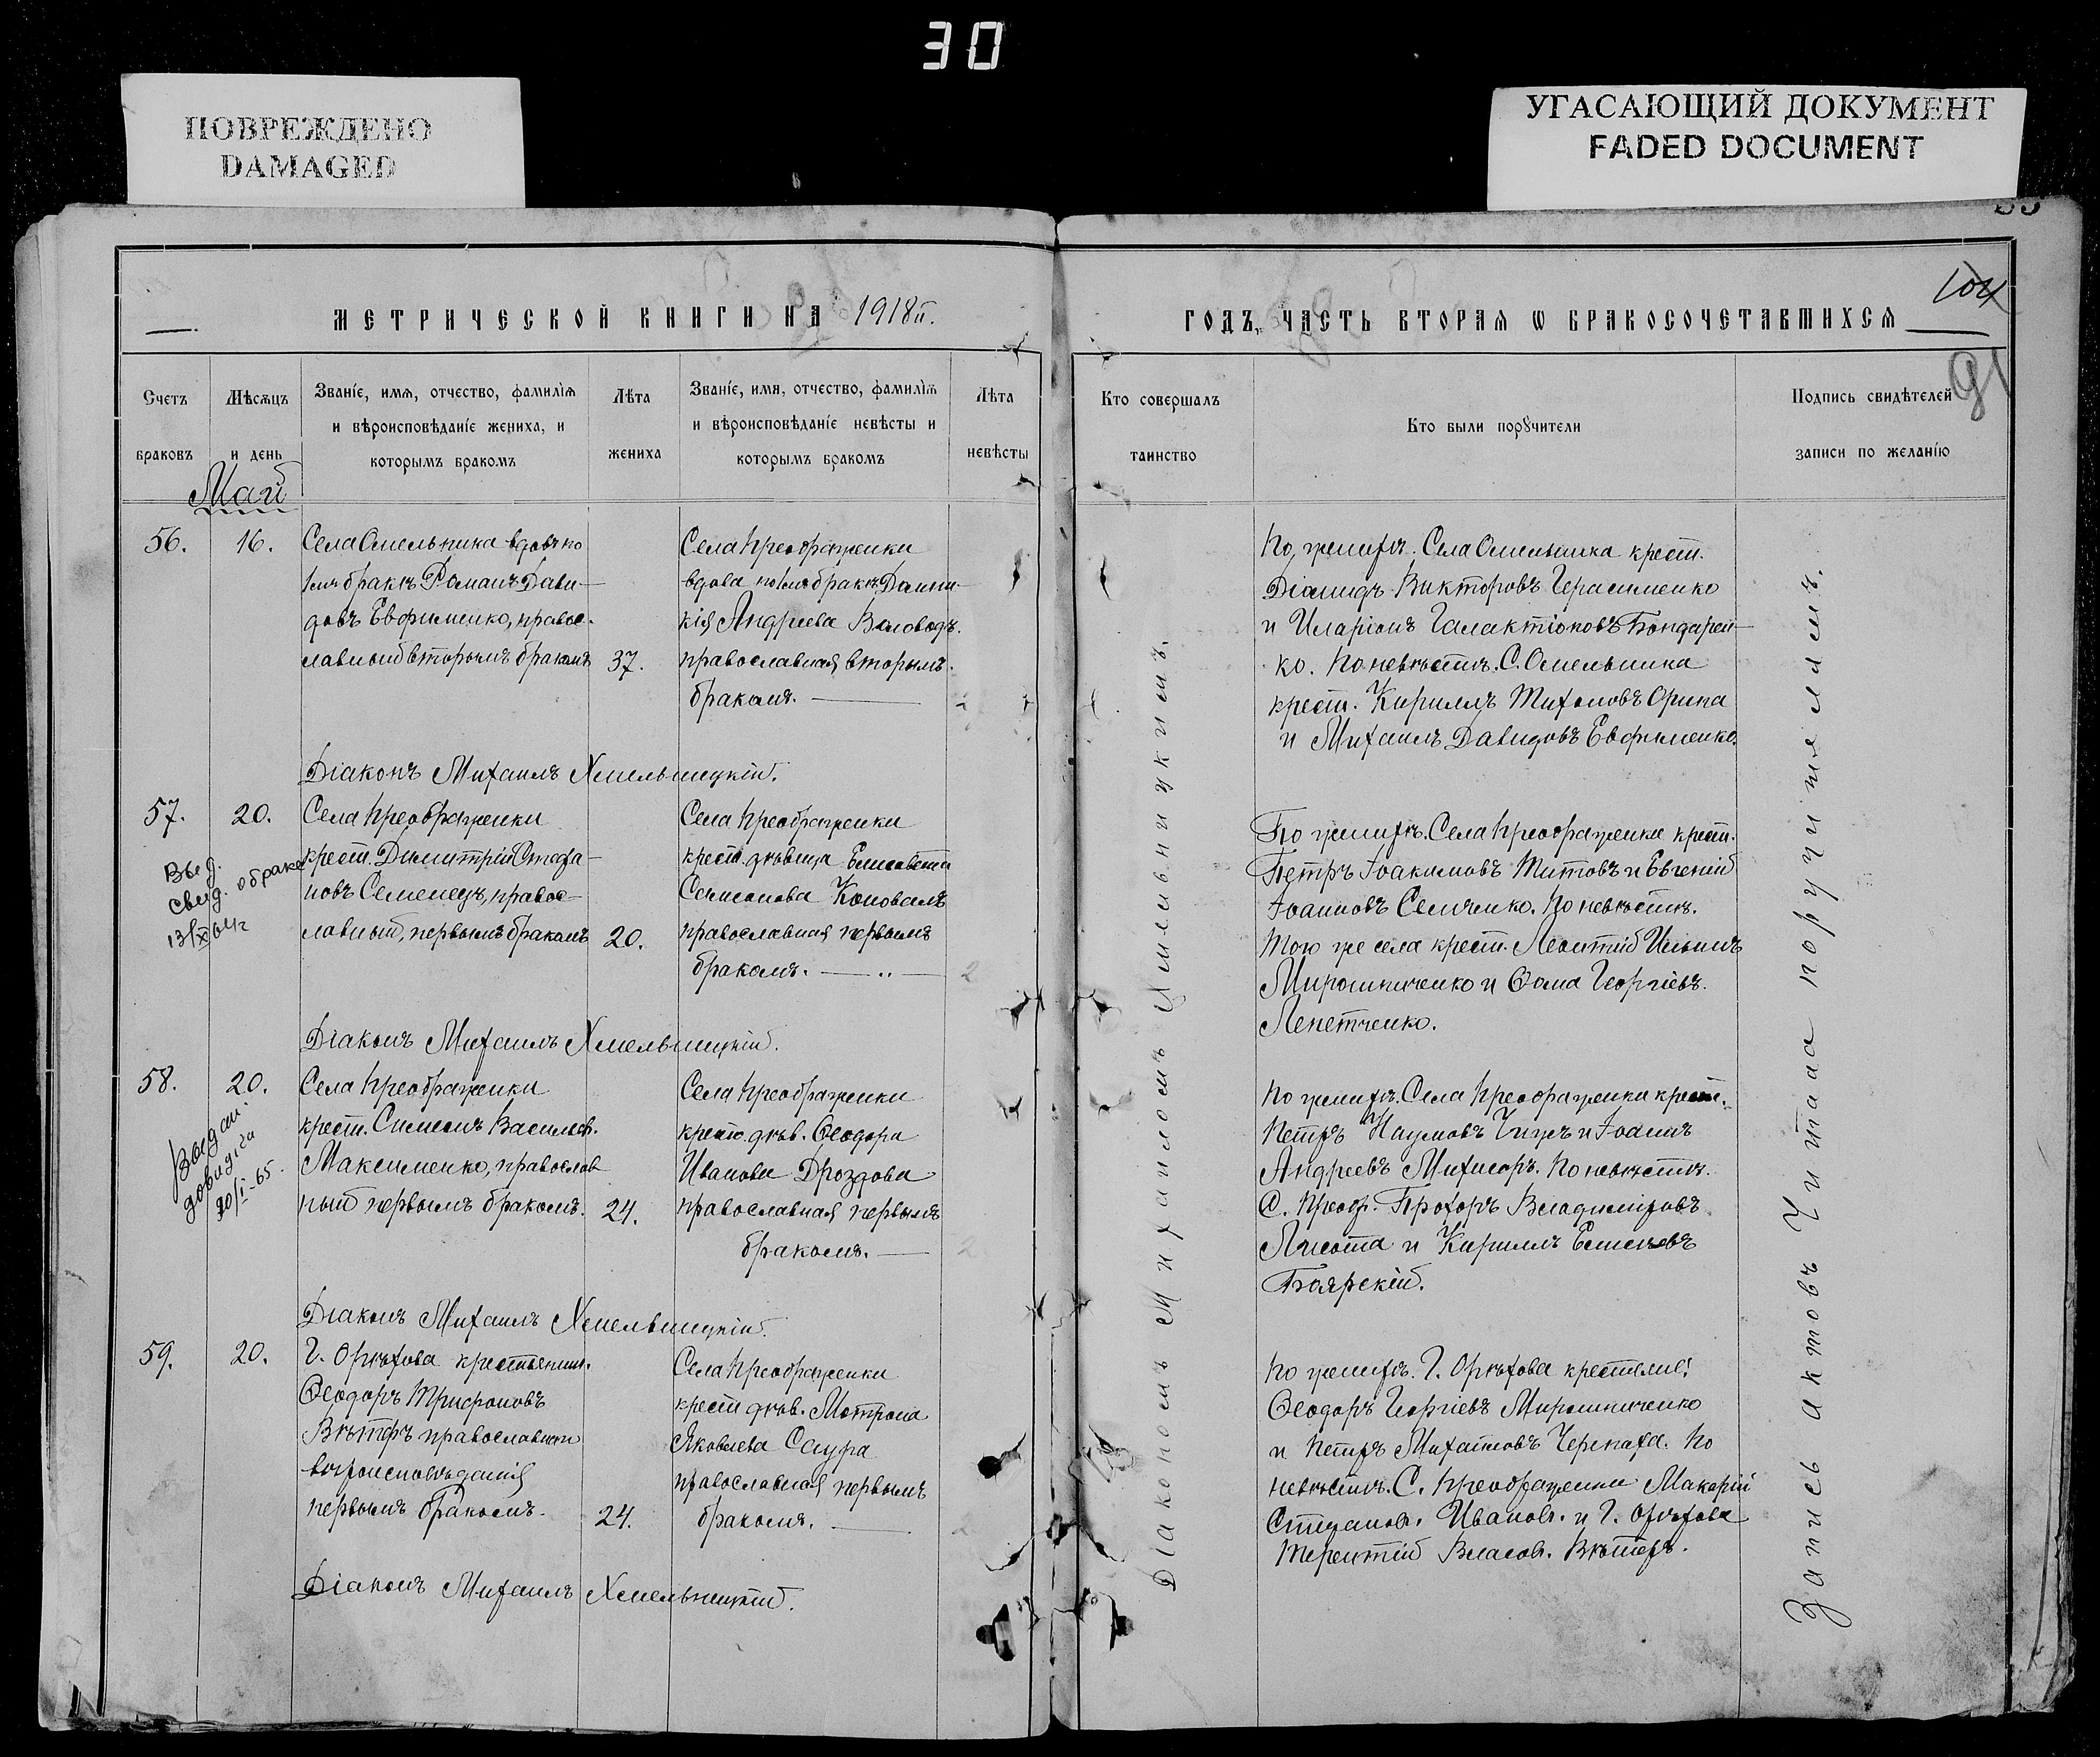 30
ПОВРЕЖДЕНО
DAMAGED
УГАСАЮЩИЙ ДОКУМЕНТ
FADED DOCUMENT
МЕТРИЧЕСКОЙ КНИГИ НА 1918й.
Счетъ браковъ
Мѣсяцъ и день
Званіе, имя, отчество, фамилія
и вѣроисповѣданіе жениха, и
которымъ бракомъ
Лѣта жениха
Званіе, имя, отчество, фамилія
и вѣроисповѣданіе невѣсты и
которымъ бракомъ
Лѣта невѣсты
Май
56.
16.
Села Омельника вдовъ по
1мъ бракѣ Романъ Дави-
довъ Евфименко, правос-
лавный вторымъ бракомъ
37.
Села Преображенки
вдова по 1мъ бракѣ Домни-
кія Андреева Воловодъ.
православная вторымъ
бракомъ.
Діаконъ Михаилъ Хмельницкій.
57.
20.
Выд.
свид. о браке
13/XI 64г
Села Преображенки
крест. Димитрій Стефа-
новъ Семенецъ, правос-
лавный, первымъ бракомъ
20.
Села Преображенки
крест. дѣвица Елисавета
Симонова Коновалъ
православная первымъ
бракомъ.
Діаконъ Михаилъ Хмельницкій.
58.
20.
20/I-65.
Села Преображенки
крест. Симеонъ Васильев.
Максименко, православ
ный первымъ бракомъ.
24.
Села Преображенки
крест. дѣв. Ѳеодора
Иванова Дроздова
православная первымъ
бракомъ.
Діаконъ Михаилъ Хмельницкій.
59.
20.
Г. Орѣхова крестьянин.
Ѳеодоръ Трифоновъ
Вѣтеръ православнаго
вѣроисповѣданія
первымъ бракомъ.
24.
Села Преображенки
крест. дѣв. Мотрона
Яковлева Саура
православная первымъ
бракомъ.
Діаконъ Михаилъ Хмельницкій.
104
ГОДЪ, ЧАСТЬ ВТОРАЯ Ѡ БРАКОСОЧЕТАВШИХСЯ
91
Кто совершалъ таинство
Кто были поручители
Подпись свидѣтелей
записи по желанію
Діакономъ Михаиломъ Хмельницкимъ.
По женихѣ. Села Омельника крест.
Діомидъ Викторовъ Герасименко
и Иларіонъ Галактіоновъ Бондарен-
ко. По невѣстѣ. С. Омельника
крест. Кириллъ Тихоновъ
и Михаилъ Давидовъ Евфименко.
По женихѣ. Села Преображенки крест.
Петръ Іоакимовъ Титовъ и Евгеній
Іоанновъ Семченко. По невѣстѣ.
Того же села крест. Леонтій Ильинъ
Мирошниченко и Ѳома Георгіевъ.
Лепетченко.
По женихѣ. Села Преображенки крест.
Петръ Наумовъ и Іоаннъ
Андреевъ. По невѣстѣ.
С. Преобр. Прохоръ Владиміровъ
и Кириллъ
Боярскій.
По женихѣ. Г. Орѣхова
Ѳеодоръ Георгіевъ Мирошниченко
и Петръ Михайловъ Черепаха. По
невѣстѣ. С. Преображенки Макарій
Степанов. Иванов. и Г. Орѣхова
Терентій Власов. Вѣтеръ.
Запись актовъ Читаа поручителямъ.